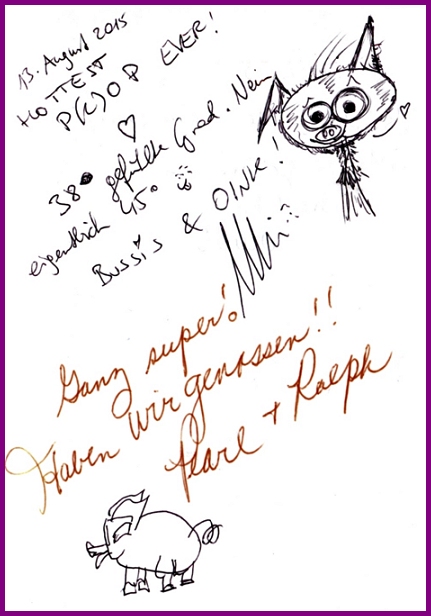 13. August 2015
HOTTEST
P(K)OP EVER!
38° gefühlte Grad. Nein
eigentlich 45°
BUSSIS & OINK!
Ganz super!
Haben wir genossen!!
Pearl + Ralph